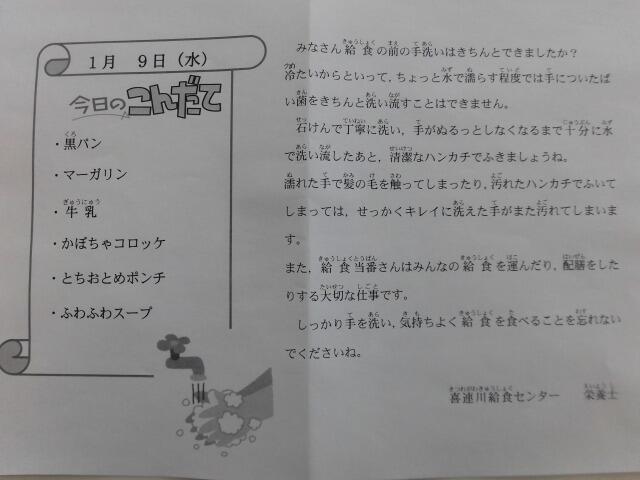 1月 9日（水）
今日のこんだて
・黒パン
・マーガリン
・牛乳
・かぼちゃコロッケ
・とちおとめポンチ
・ふわふわスープ
みなさん給食の前の手洗いはきちんとできましたか？
冷たいからといって，ちょっと水で濡らす程度では手についたば
い菌をきちんと洗い流すことはできません。
石けんで丁寧に洗い，手がぬるっとしなくなるまで十分に水
で洗い流したあと，清潔なハンカチでふきましょうね。
濡れた手で髪の毛を触ってしまったり，汚れたハンカチでふいて
しまっては，せっかくキレイに洗えた手がまた汚れてしまいま
す。
また，給食当番さんはみんなの給食を運んだり，配膳をした
りする大切な仕事です。
しっかり手を洗い，気持ちよく給食を食べることを忘れない
でくださいね。
喜連川給食センター　栄養士